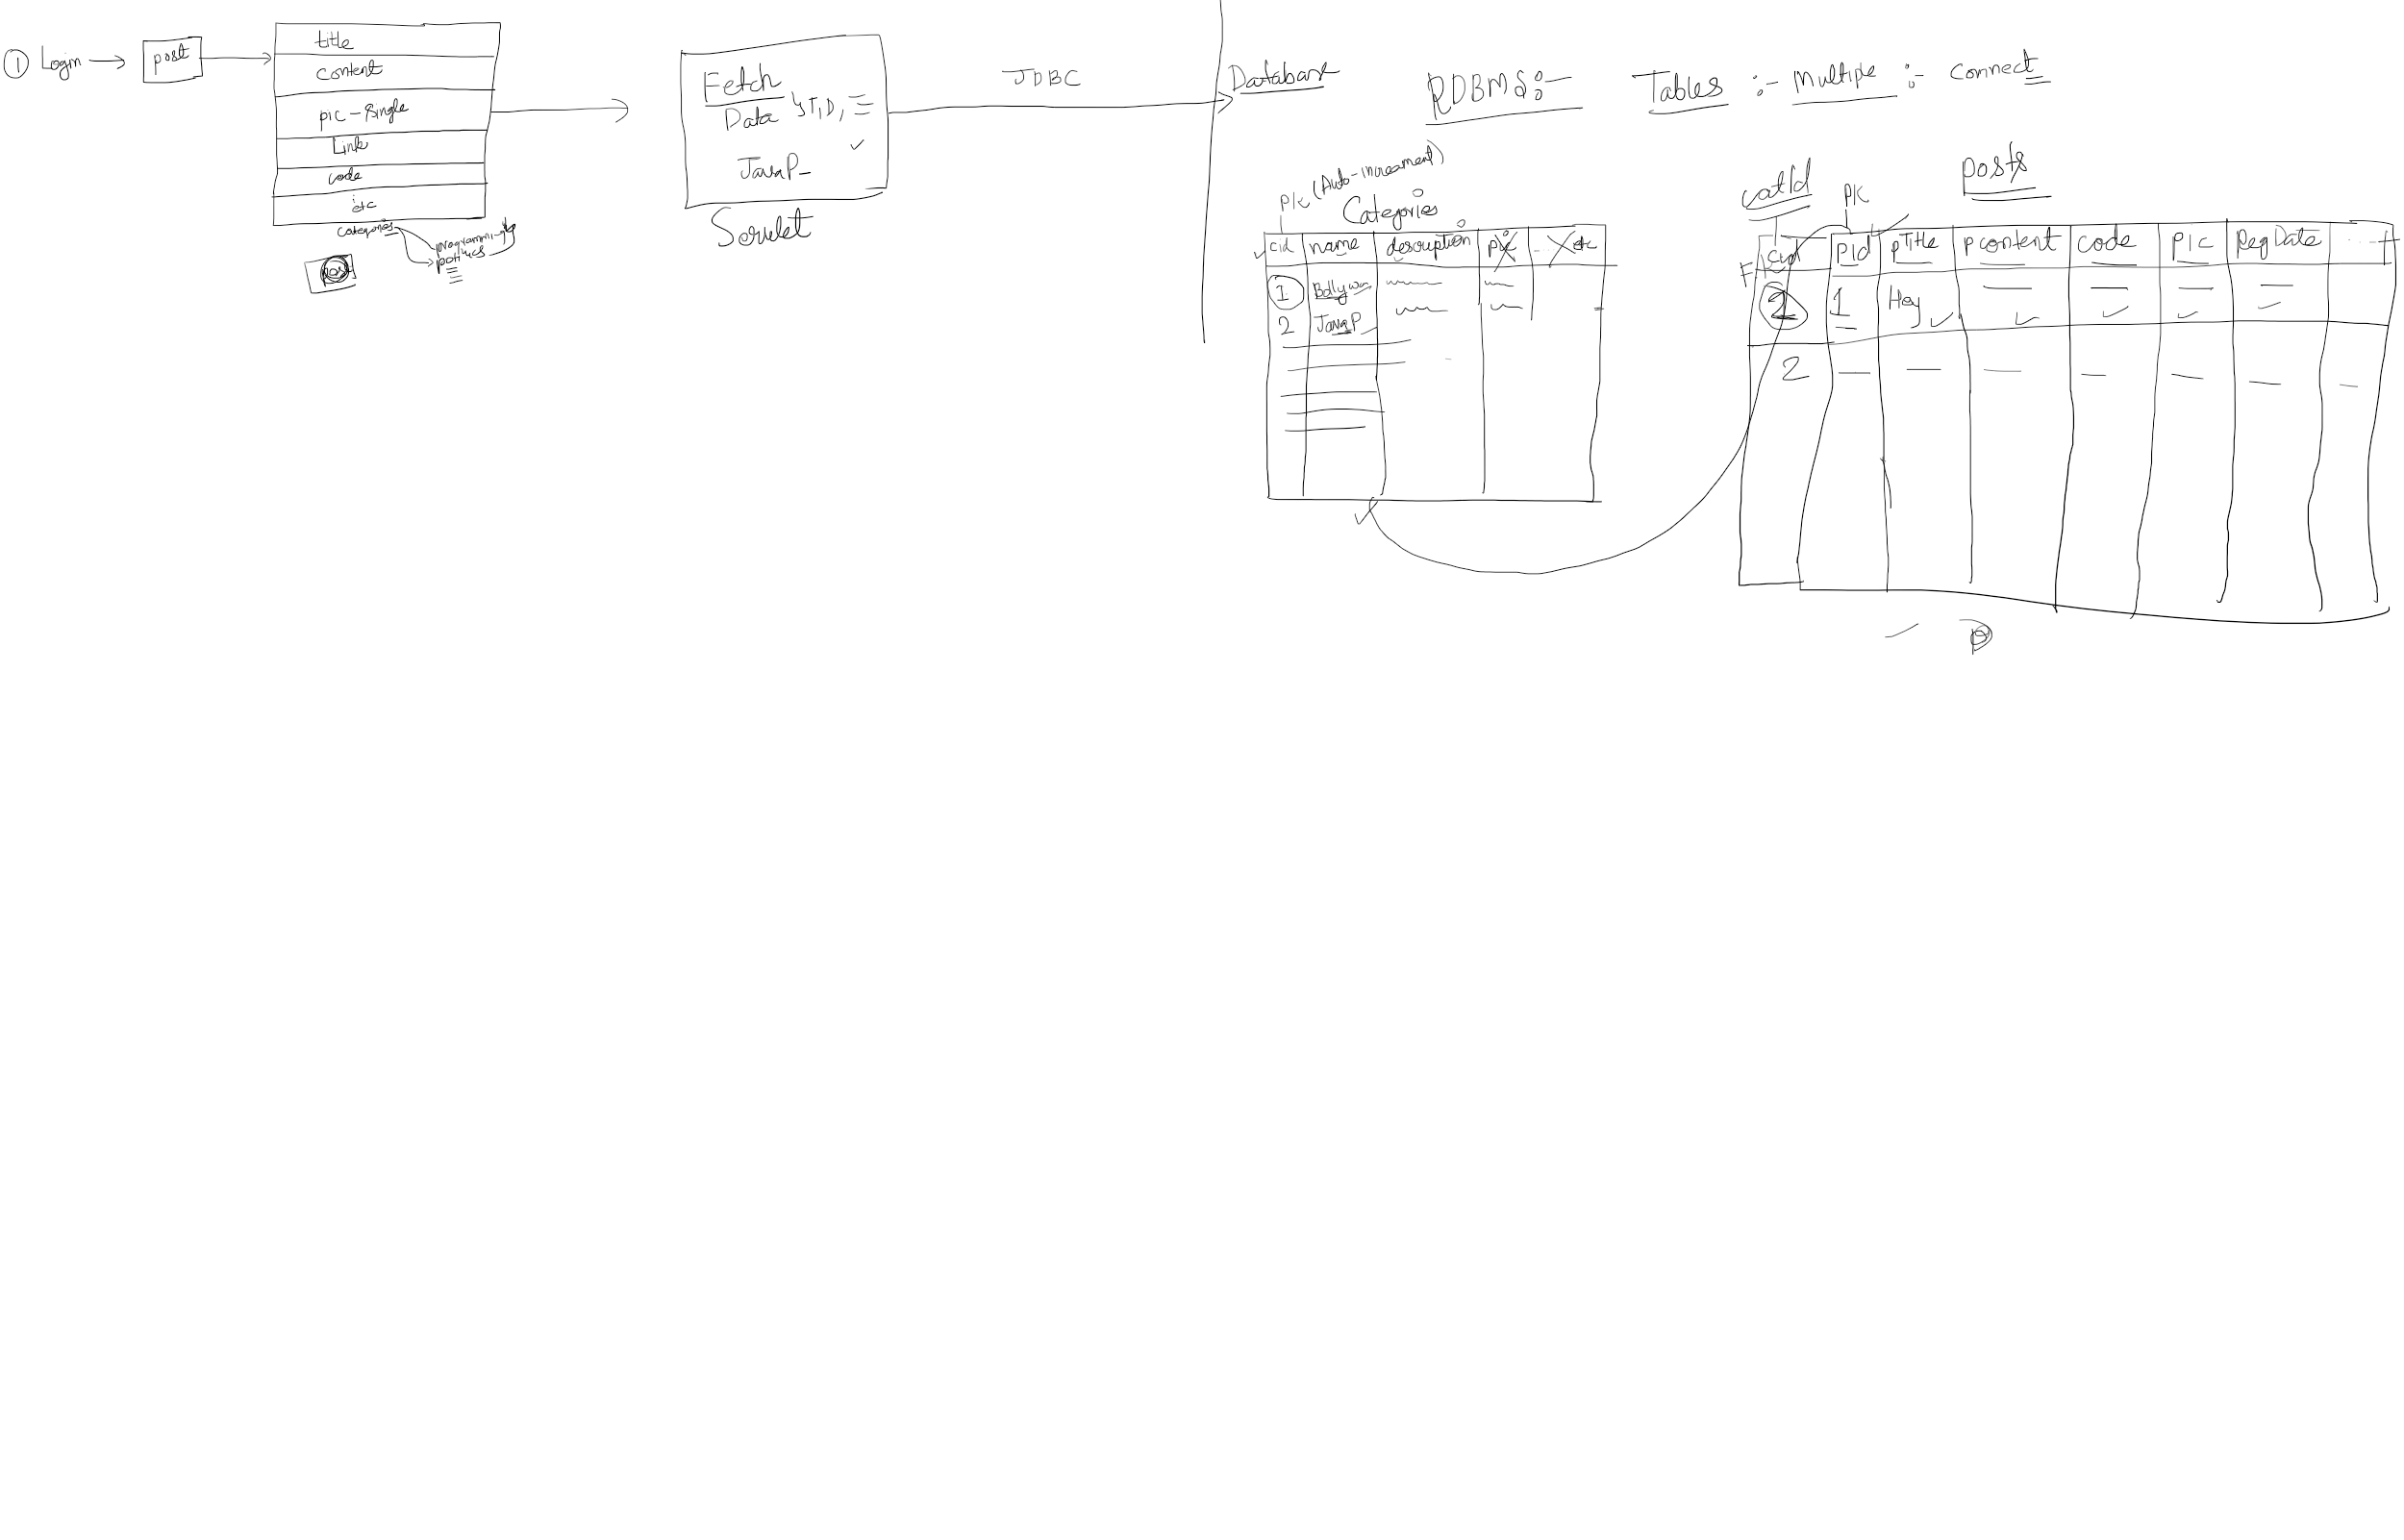 ① Login → post
title
content
pic - single
Link
code
etc
categories
programming
politics
post
Fetch
Data T, D,
JavaP_
Servlet
JDBC
Database
RDBMS:-
Tables :- Multiple :- Connect
PK (Auto-increament)
Categories
cid name description pic etc
1 Bollywoo
2 JavaP
catId
PK
posts
FK cid pId pTitle pcontent code pic RegDate ....
2 1 Hey
2
P